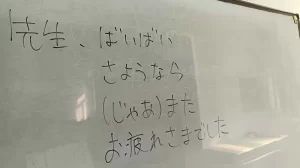 先生、ばいばい
さようなら
(じゃあ)また
お疲れさまでした